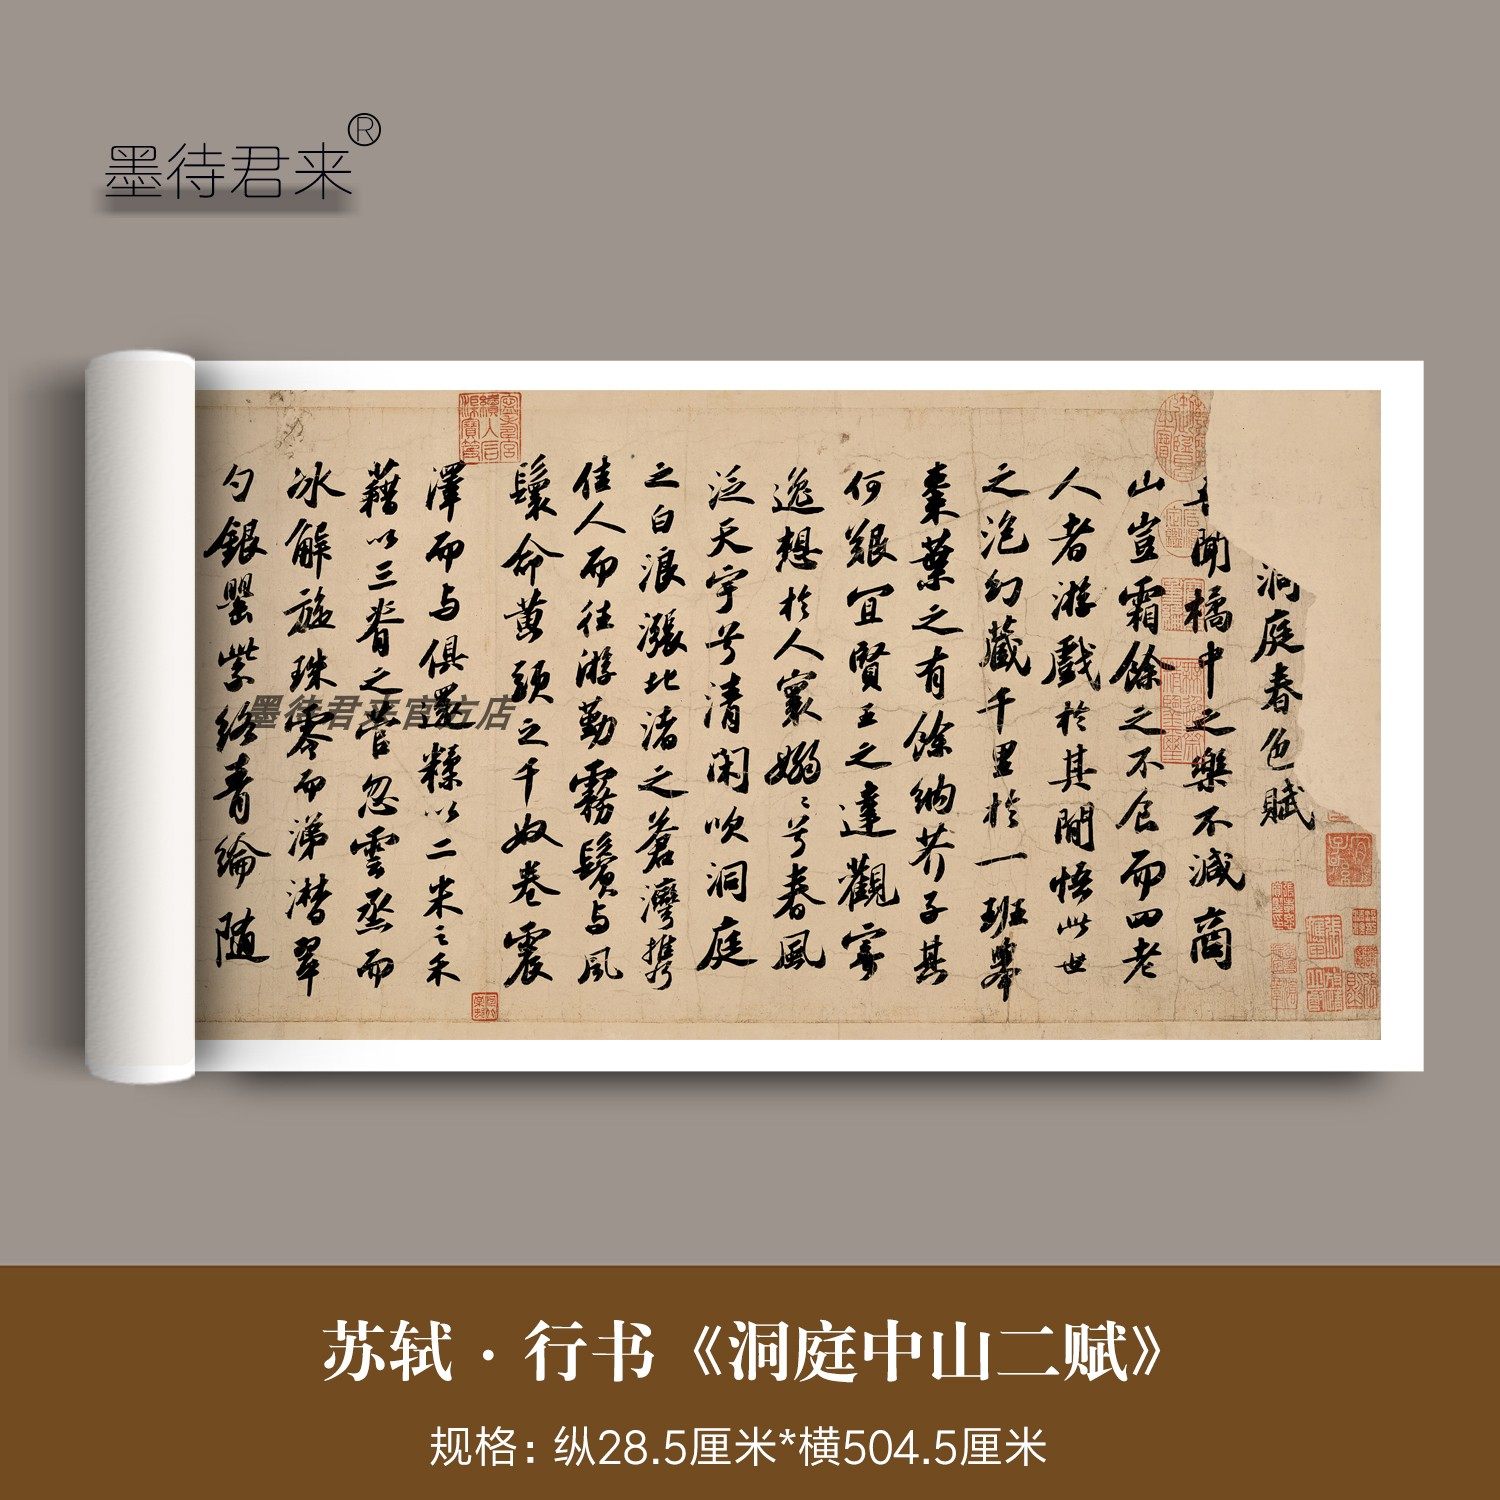 墨待君来®
洞庭春色賦
聞橘中之樂不減商
山豈霜餘之不食而四老
人者游戲於其間悟此世
之泡幻藏千里於一班舉
棗葉之有餘納芥子其
何艱宜賢王之達觀寄
逸想於人寰嫋〻兮春風
泛天宇兮清閑吹洞庭
之白浪漲北渚之蒼灣攜
佳人而往游勤霧鬢與風
鬟命黃頭之千奴卷震
澤而與俱還糅以二米之禾
藉以三脊之菅忽雲烝而
冰解旋珠零而涕潸翠
勺銀罌紫絡青綸隨
墨待君来官方店
苏轼·行书《洞庭中山二赋》
规格：纵28.5厘米*横504.5厘米